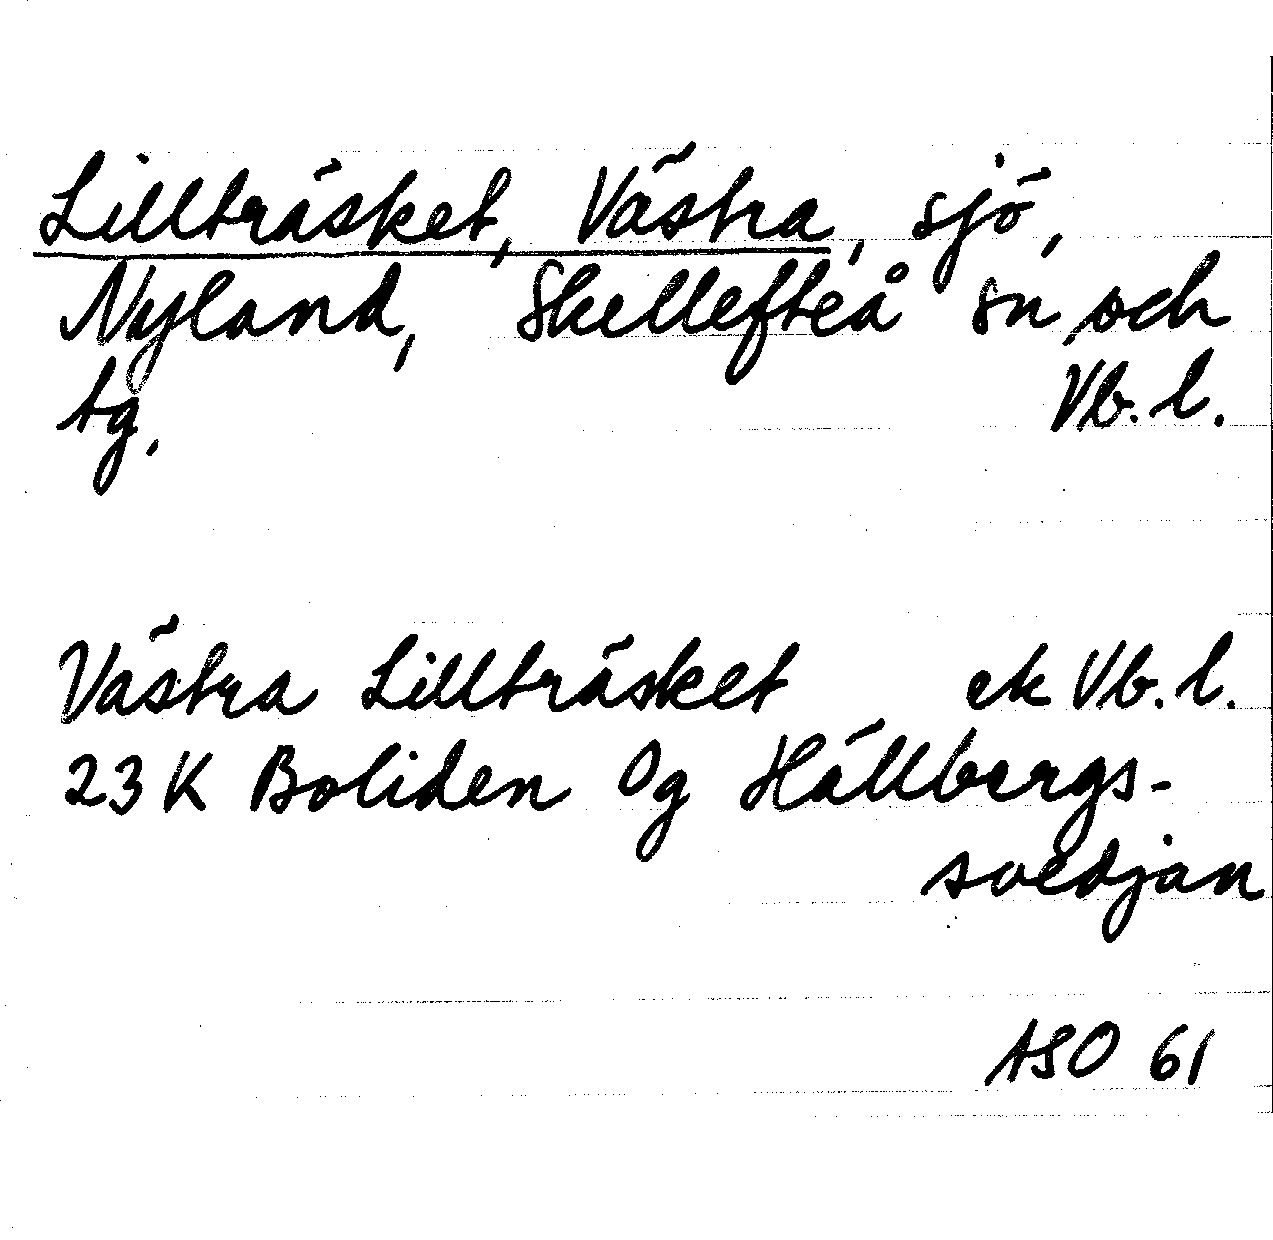 Lillträsket, Västra, sjö,
Nyland, Skellefteå sn och
tg. Vb. l.
Västra Lillträsket ek Vb. l.
23 K Boliden 0g Hällbergs-
svedjan
ASO 61